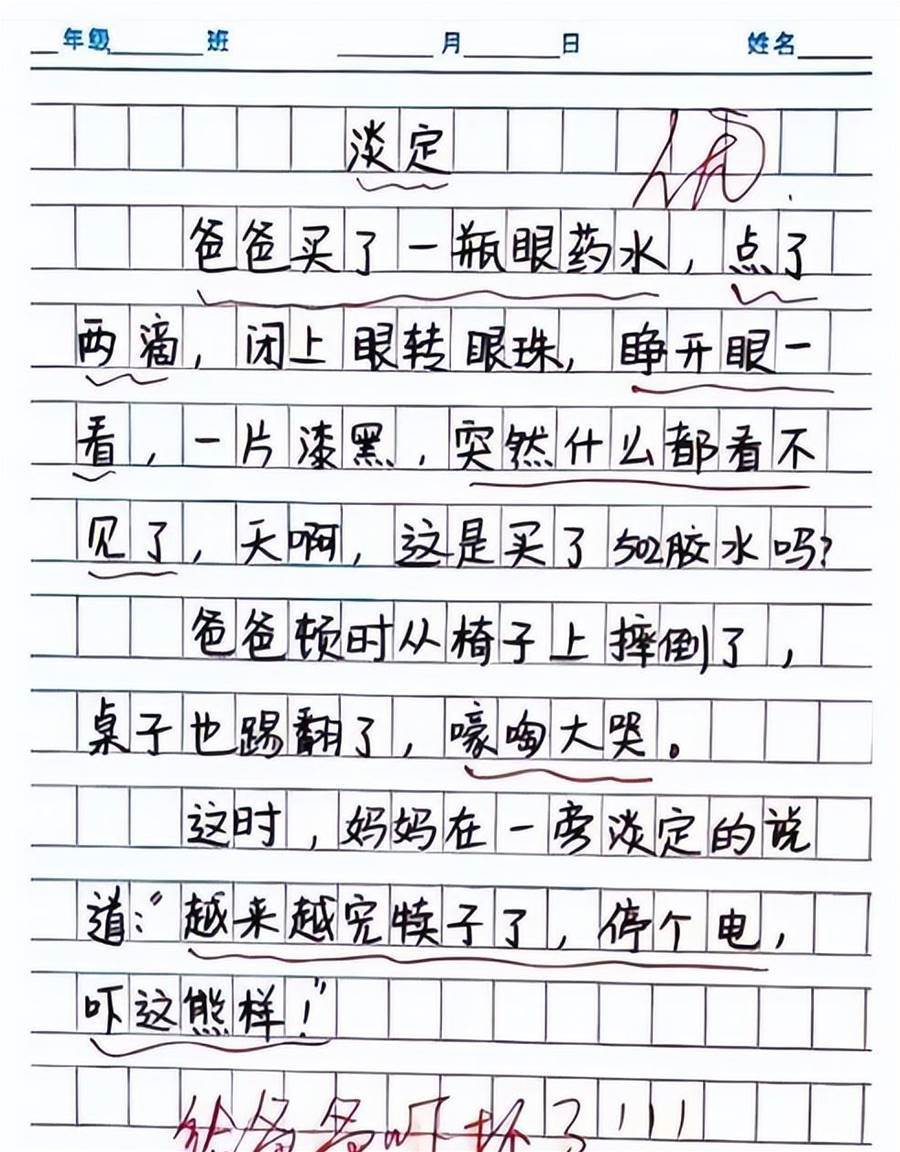 年级 班 月 日 姓名
淡定
优
爸爸买了一瓶眼药水，点了
两滴，闭上眼转眼珠，睁开眼一
看，一片漆黑，突然什么都看不
见了，天啊，这是买了502胶水吗？
爸爸顿时从椅子上摔倒了，
桌子也踢翻了，嚎啕大哭。
这时，妈妈在一旁淡定的说
道：“越来越完犊子了，停个电，
吓这熊样！”
爸爸吓坏了！！！